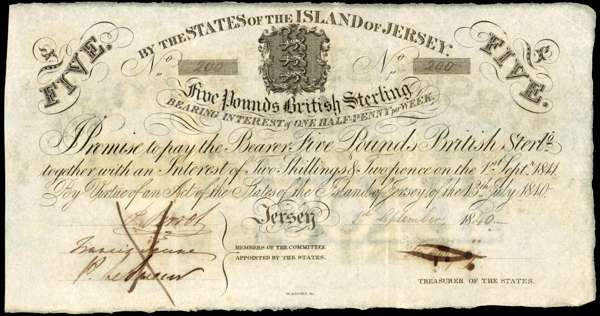 BY THE STATES OF THE ISLAND OF JERSEY.
FIVE. FIVE.
No 200 No 200
Five Pounds British Sterling
BEARING INTEREST of ONE HALF-PENNY per WEEK.
I Promise to pay the Bearer Five Pounds British Sterlg
together with an Interest of Two Shillings & Twopence on the 1st Septr 1841
By Virtue of an Act of the States of the Island of Jersey, of the 13th July 1840
Jersey 1st September 1840
MEMBERS OF THE COMMITTEE
APPOINTED BY THE STATES.
TREASURER OF THE STATES.